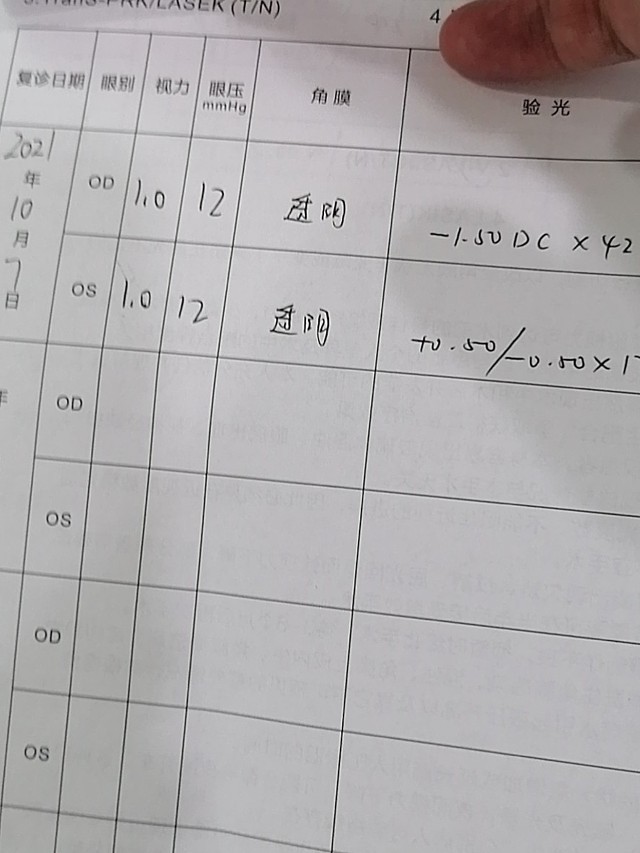 3.Trans-PRK/LASEK (T/N)
4
复诊日期 眼别 视力 眼压 mmHg 角膜 验光
2021年10月7日
OD 1.0 12 透明 -1.50 DC × 42
OS 1.0 12 透明 +0.50/-0.50×1
年
OD
OS
OD
OS